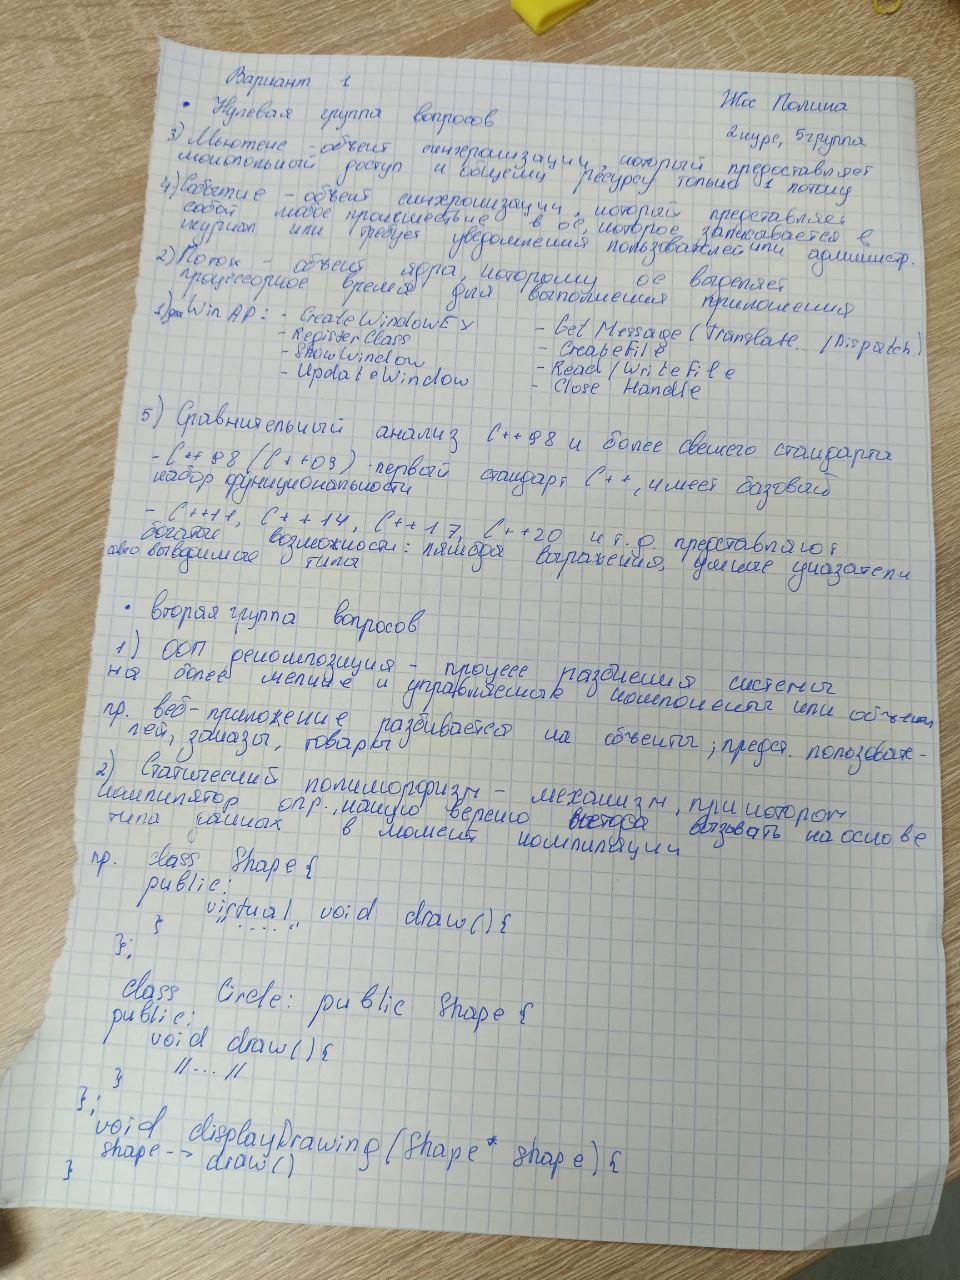 Вариант 1
Жос Полина
2 курс, 5 группа
• Нулевая группа вопросов
3) Мьютекс - объект синхронизации, который предоставляет
монопольный доступ к общему ресурсу только 1 потоку
4) Событие - объект синхронизации, который представляет
собой любое происшествие в ОС, которое записывается в
журнал или требует уведомления пользователей или администр.
2) Поток - объект ядра, которому ОС выделяет
процессорное время для выполнения приложения
1) для WinAP: - CreateWindowEx
- RegisterClass
- ShowWindow
- UpdateWindow
- GetMessage (Translate... / Dispatch)
- CreateFile
- Read / WriteFile
- Close Handle
5) Сравнительный анализ C++98 и более свежего стандарта
- C++98 (C++03) - первый стандарт C++, имеет базовый
набор функциональности
- C++11, C++14, C++17, C++20 и т.д. представляют
богатые возможности: лямбда выражения, умные указатели
авто выводимые типа
• Вторая группа вопросов
1) ООП декомпозиция - процесс разбиения системы
на более мелкие и управляемые компоненты или объекты
пр. веб-приложение разбивается на объекты; предст. пользовате-
лей, заказы, товары
2) Статический полиморфизм - механизм, при котором
компилятор опр., какую версию вызвать на основе
типа данных в момент компиляции
пр. class Shape {
public:
virtual void draw() {
" ..... "
}
};
class Circle: public Shape {
public:
void draw() {
//...//
}
};
void displayDrawing (Shape* shape) {
shape --> draw()
}